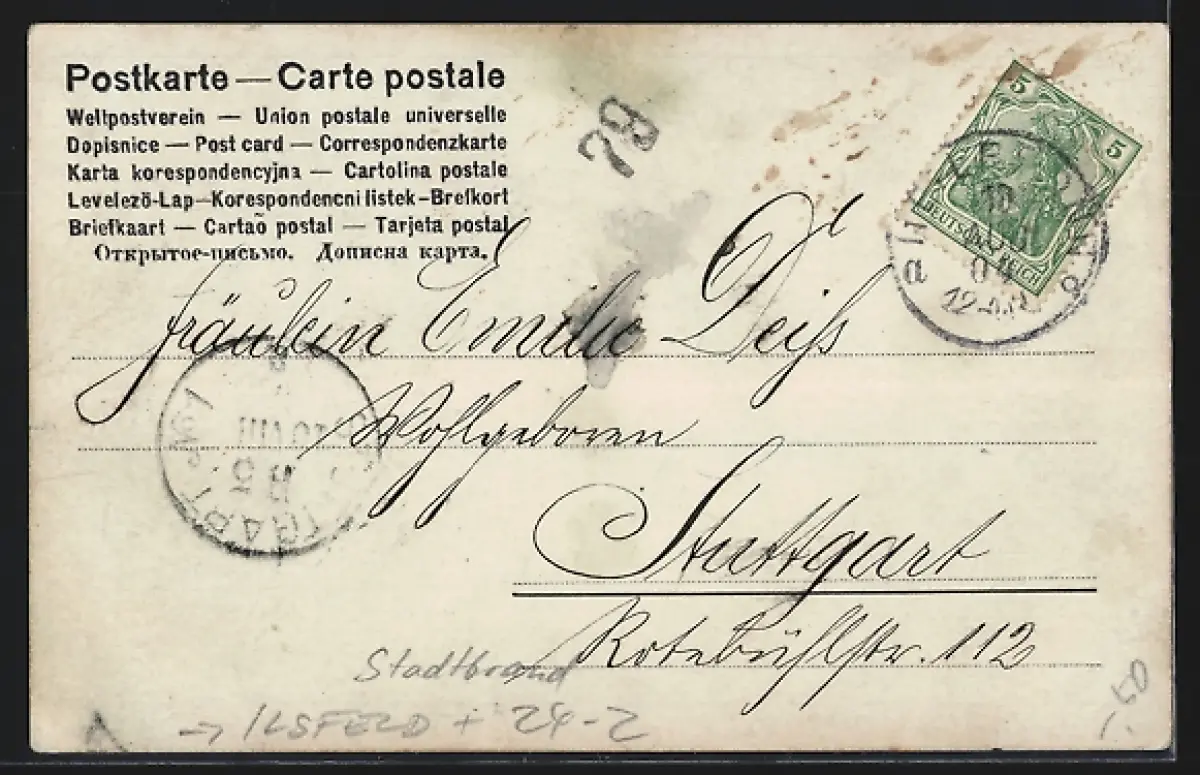 Postkarte — Carte postale
Weltpostverein — Union postale universelle
Dopisnice — Post card — Correspondenzkarte
Karta korespondencyjna — Cartolina postale
Levelező-Lap—Korespondencni listek-Brefkort
Briefkaart — Cartaõ postal — Tarjeta postal
Открытое-письмо. Дописна карта.
79
5
5
DEUTSCHES REICH
Fräulein Emilie Deiß
Wohlgeboren
Stuttgart
Rotebühlstr. 112
10 VIII
Stadtbrand
→ ILSFELD + 24-2
1.50